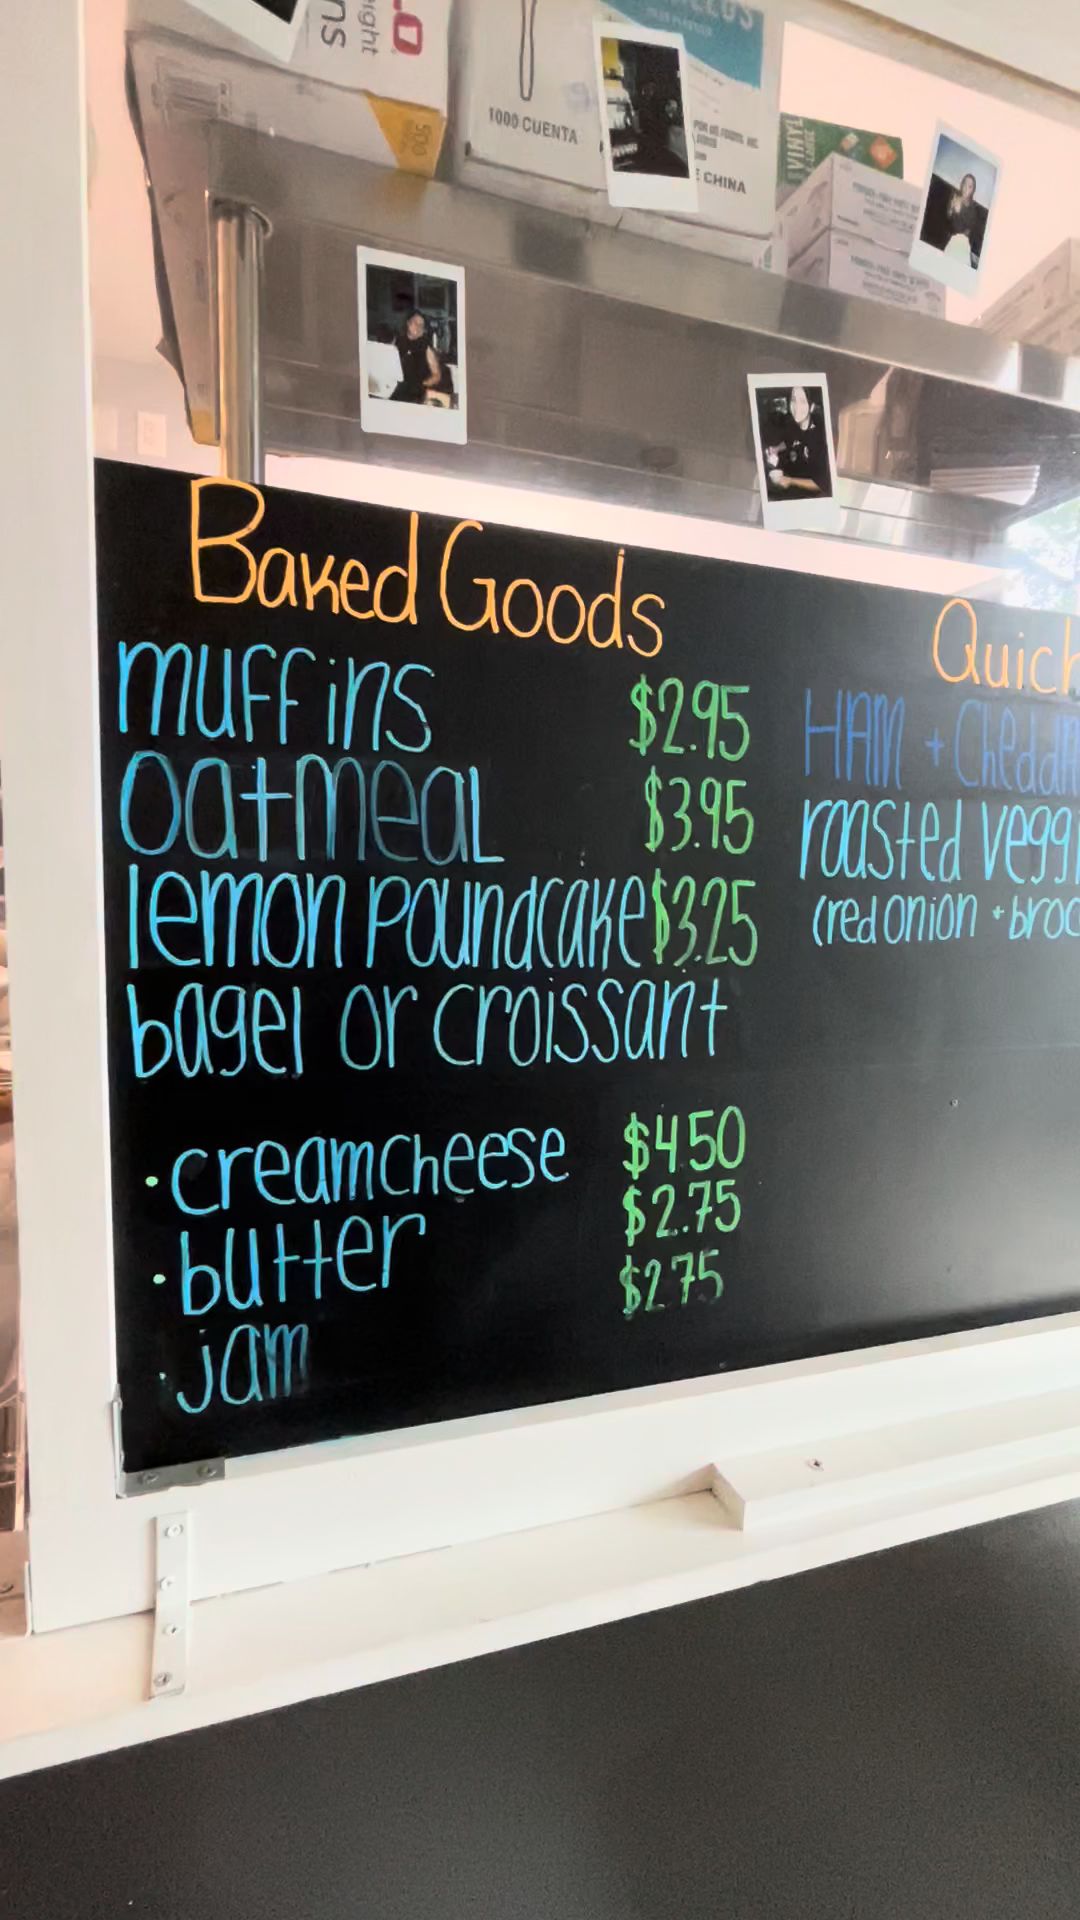 1000 CUENTA
CHINA
VINYL
500
Baked Goods
muffins $2.95
oatmeal $3.95
lemon poundcake $3.25
bagel or croissant
• creamcheese $4.50
• butter $2.75
• jam $2.75
Quich
HAM + Chedda
roasted vegg
(red onion + broc